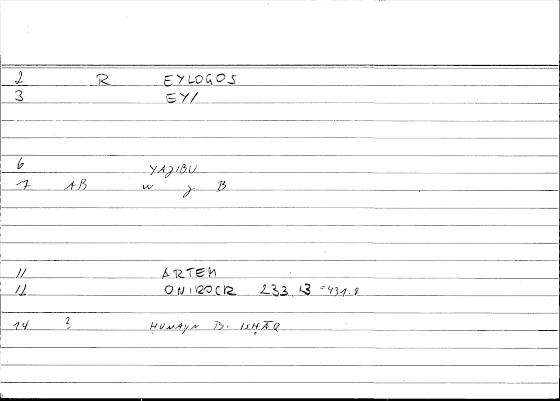 2 R EYLOGOS
3 EY/
6 YAJIBU
7 AB w j B
11 ARTEM
12 ONIROCR 233,13 = 431.9
14 ? ḤUNAYN B. ISḤĀQ